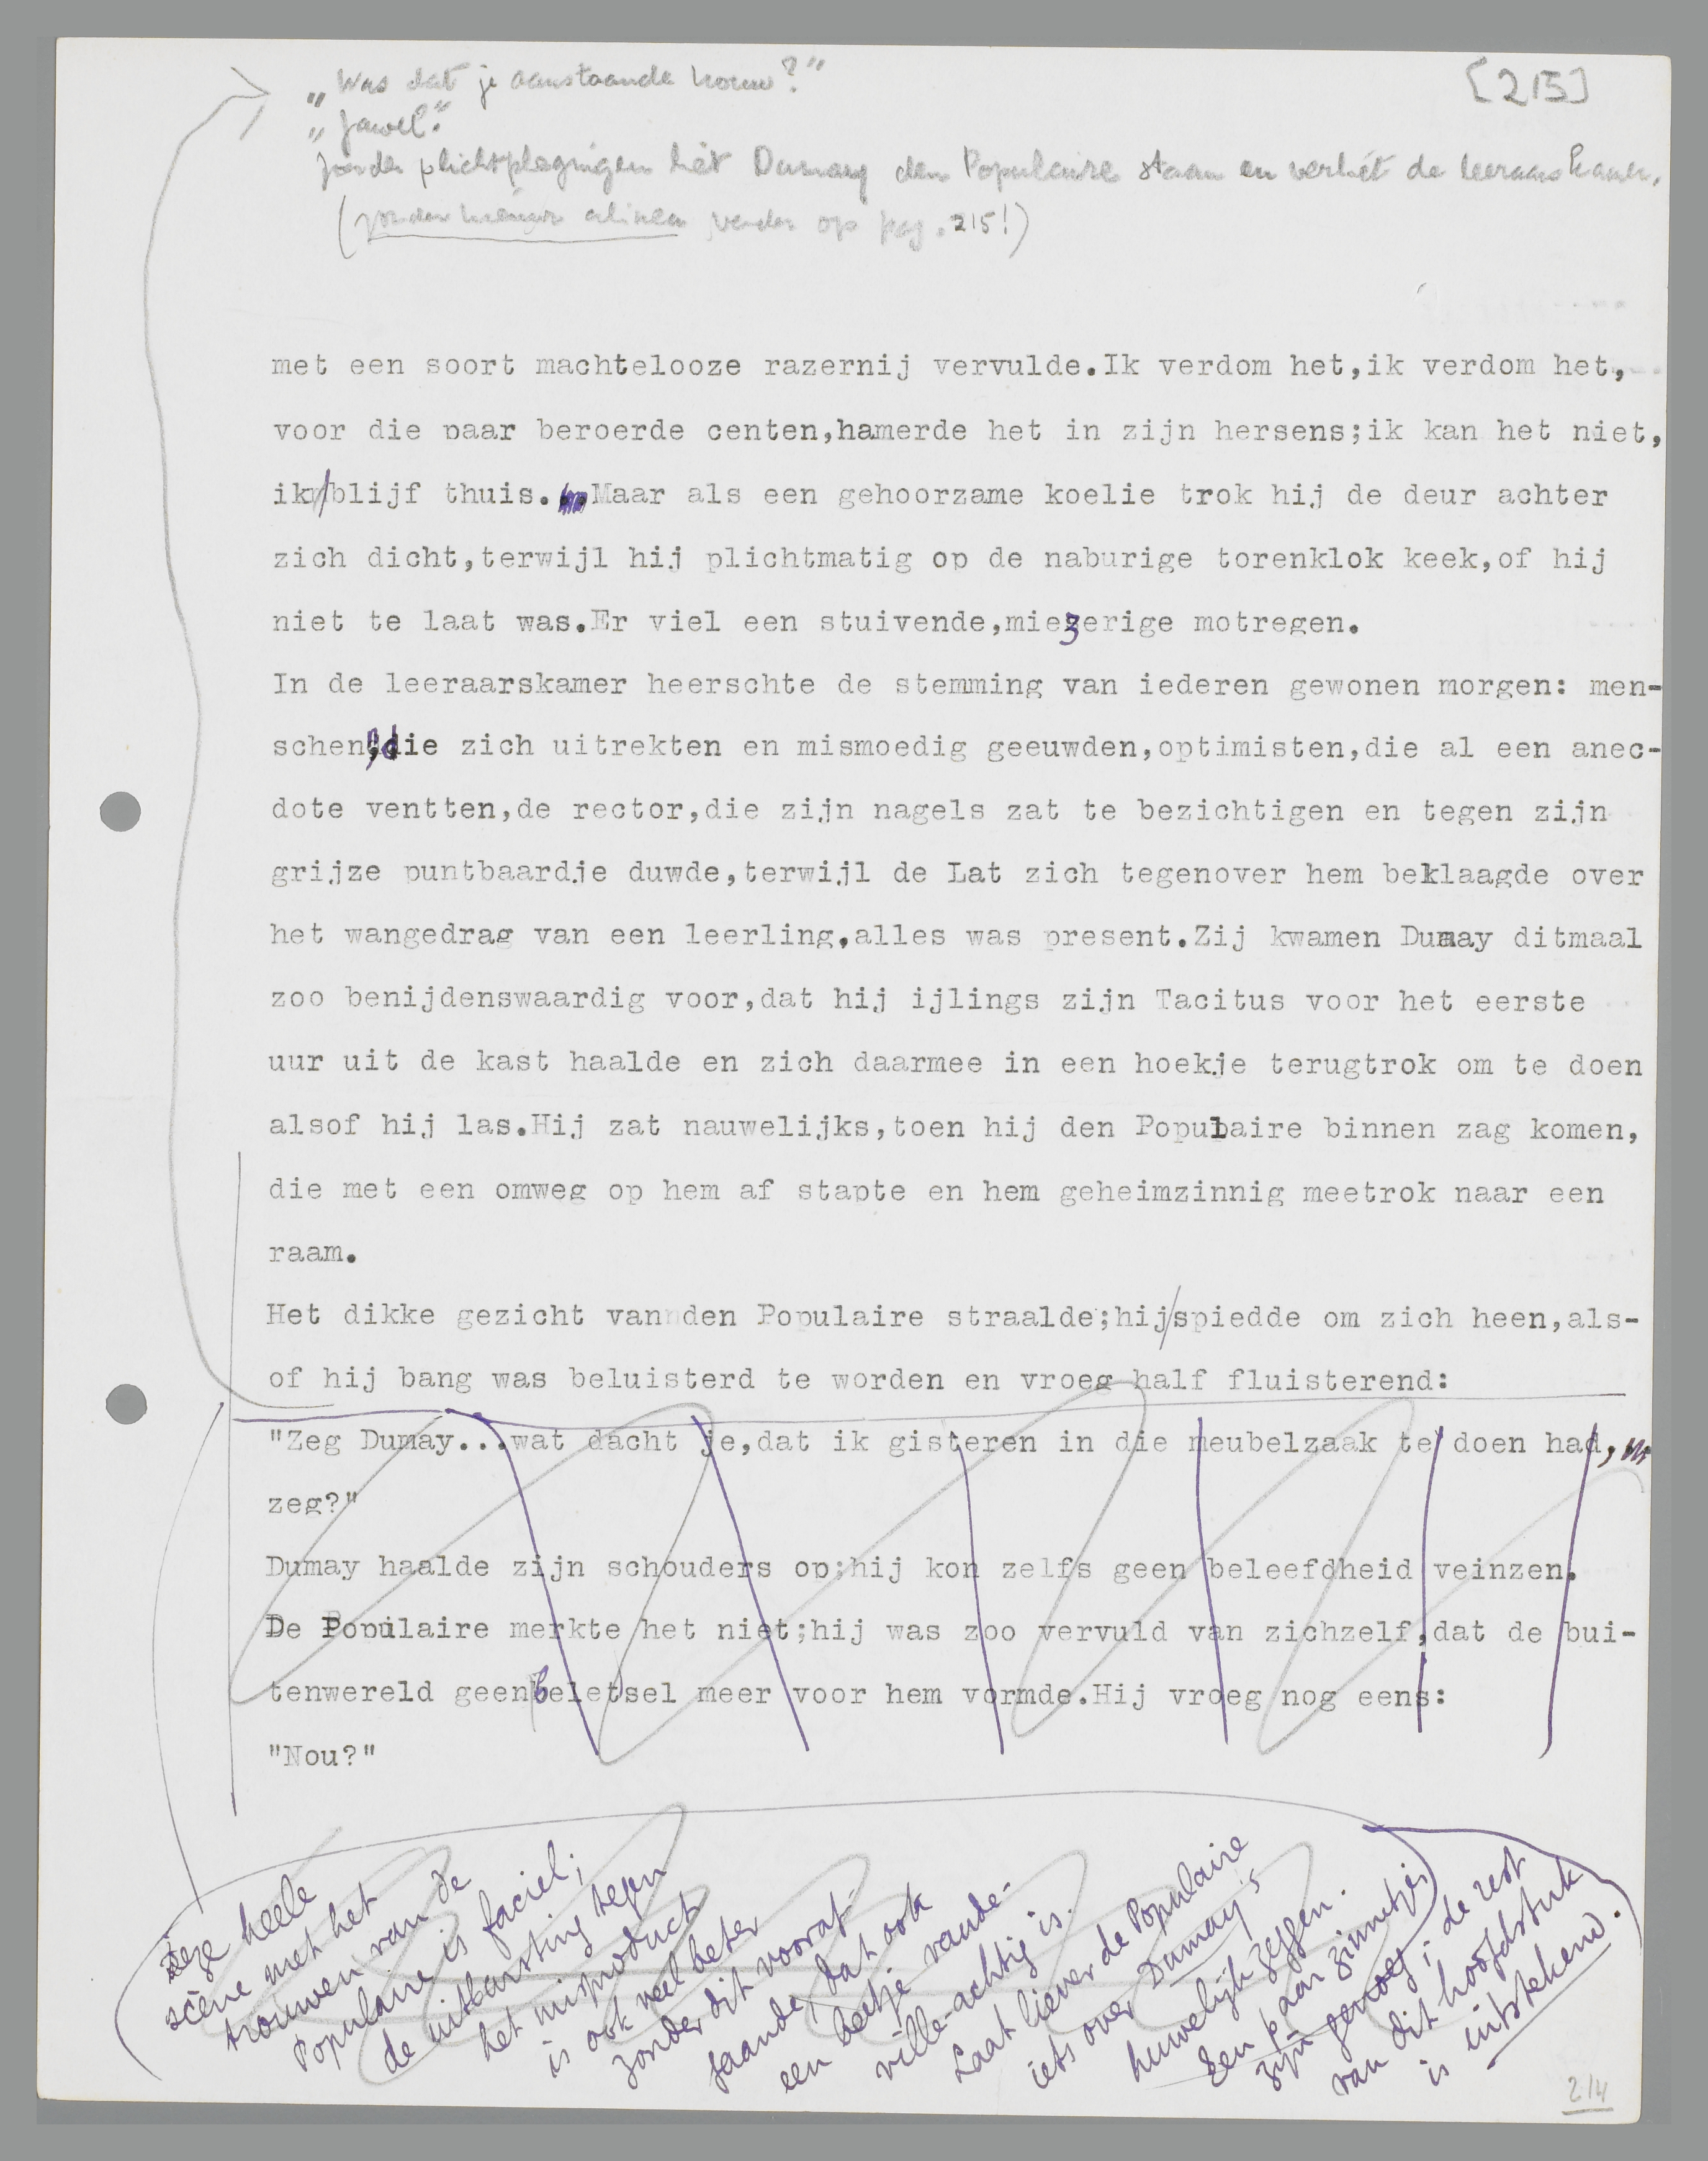 „Was dat je aanstaande vrouw?"
„Jawel."
Zonder plichtplegingen liet Dumay den Populaire staan en verliet de leeraarskamer.
(zonder nieuwe alinea verder op pag. 215!)
[215]
met een soort machtelooze razernij vervulde.Ik verdom het,ik verdom het,
voor die paar beroerde centen,hamerde het in zijn hersens;ik kan het niet,
ik/blijf thuis. Maar als een gehoorzame koelie trok hij de deur achter
zich dicht,terwijl hij plichtmatig op de naburige torenklok keek,of hij
niet te laat was.Er viel een stuivende,miezerige motregen.
In de leeraarskamer heerschte de stemming van iederen gewonen morgen: men-
schen,die zich uitrekten en mismoedig geeuwden,optimisten,die al een anec-
dote ventten,de rector,die zijn nagels zat te bezichtigen en tegen zijn
grijze puntbaardje duwde,terwijl de Lat zich tegenover hem beklaagde over
het wangedrag van een leerling,alles was present.Zij kwamen Dumay ditmaal
zoo benijdenswaardig voor,dat hij ijlings zijn Tacitus voor het eerste
uur uit de kast haalde en zich daarmee in een hoekje terugtrok om te doen
alsof hij las.Hij zat nauwelijks,toen hij den Populaire binnen zag komen,
die met een omweg op hem af stapte en hem geheimzinnig meetrok naar een
raam.
Het dikke gezicht van den Populaire straalde;hij/spiedde om zich heen,als-
of hij bang was beluisterd te worden en vroeg half fluisterend:
"Zeg Dumay...wat dacht je,dat ik gisteren in die meubelzaak te doen had,
zeg?"
Dumay haalde zijn schouders op;hij kon zelfs geen beleefdheid veinzen.
De Populaire merkte het niet;hij was zoo vervuld van zichzelf,dat de bui-
tenwereld geen beletsel meer voor hem vormde.Hij vroeg nog eens:
"Nou?"
Deze heele
scène met het
trouwen van de
Populaire is faciel;
de uitbarsting tegen
het misproduct
is ook veel beter
zonder dit vooraf-
gaande, dat ook
een beetje vaude-
ville-achtig is.
Laat liever de Populaire
iets over Dumay's
huwelijk zeggen.
Een paar zinnetjes
zijn genoeg; de rest
van dit hoofdstuk
is uitstekend.
214